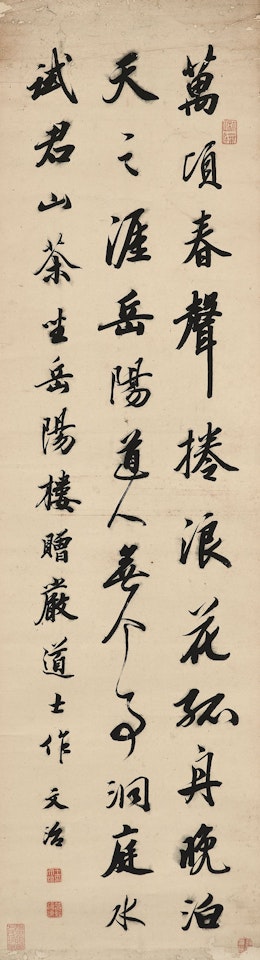 萬頃春聲捲浪花孤舟晚泊
天之涯岳陽道人無个事洞庭水
試君山茶坐岳陽樓贈嚴道士作文治